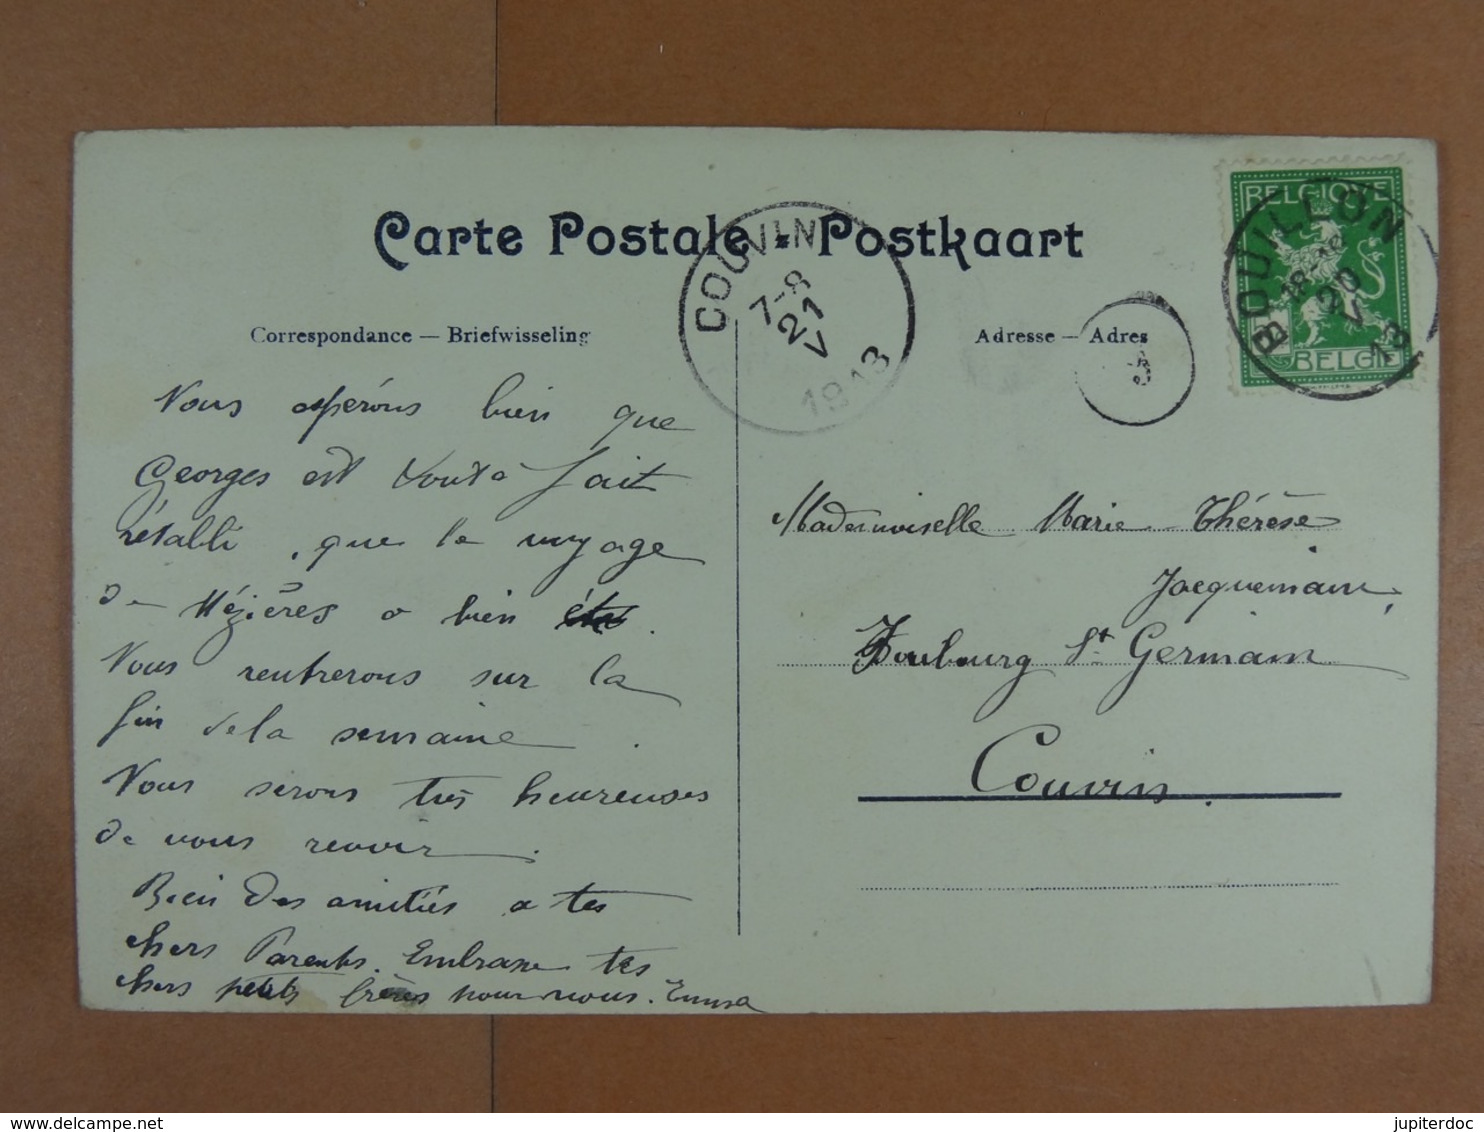 Carte Postale - Postkaart
Correspondance — Briefwisseling
Adresse — Adres
COUVIN
7-8
21
V
1913
BELGIQUE
BELGIË
BOUILLON
20
V
13
Nous espérons bien que
Georges est tout à fait
rétabli, que le voyage
de Mézières a bien été.
Nous rentrerons sur la
fin de la semaine.
Nous serons très heureuses
de vous revoir.
Bien des amitiés a tes
chers Parents. Embrasse tes
chers petits frères pour nous. Emma
Mademoiselle Marie Thérèse
Jacquemain,
Faubourg St Germain
Couvin.
delcampe.net
jupiterdoc